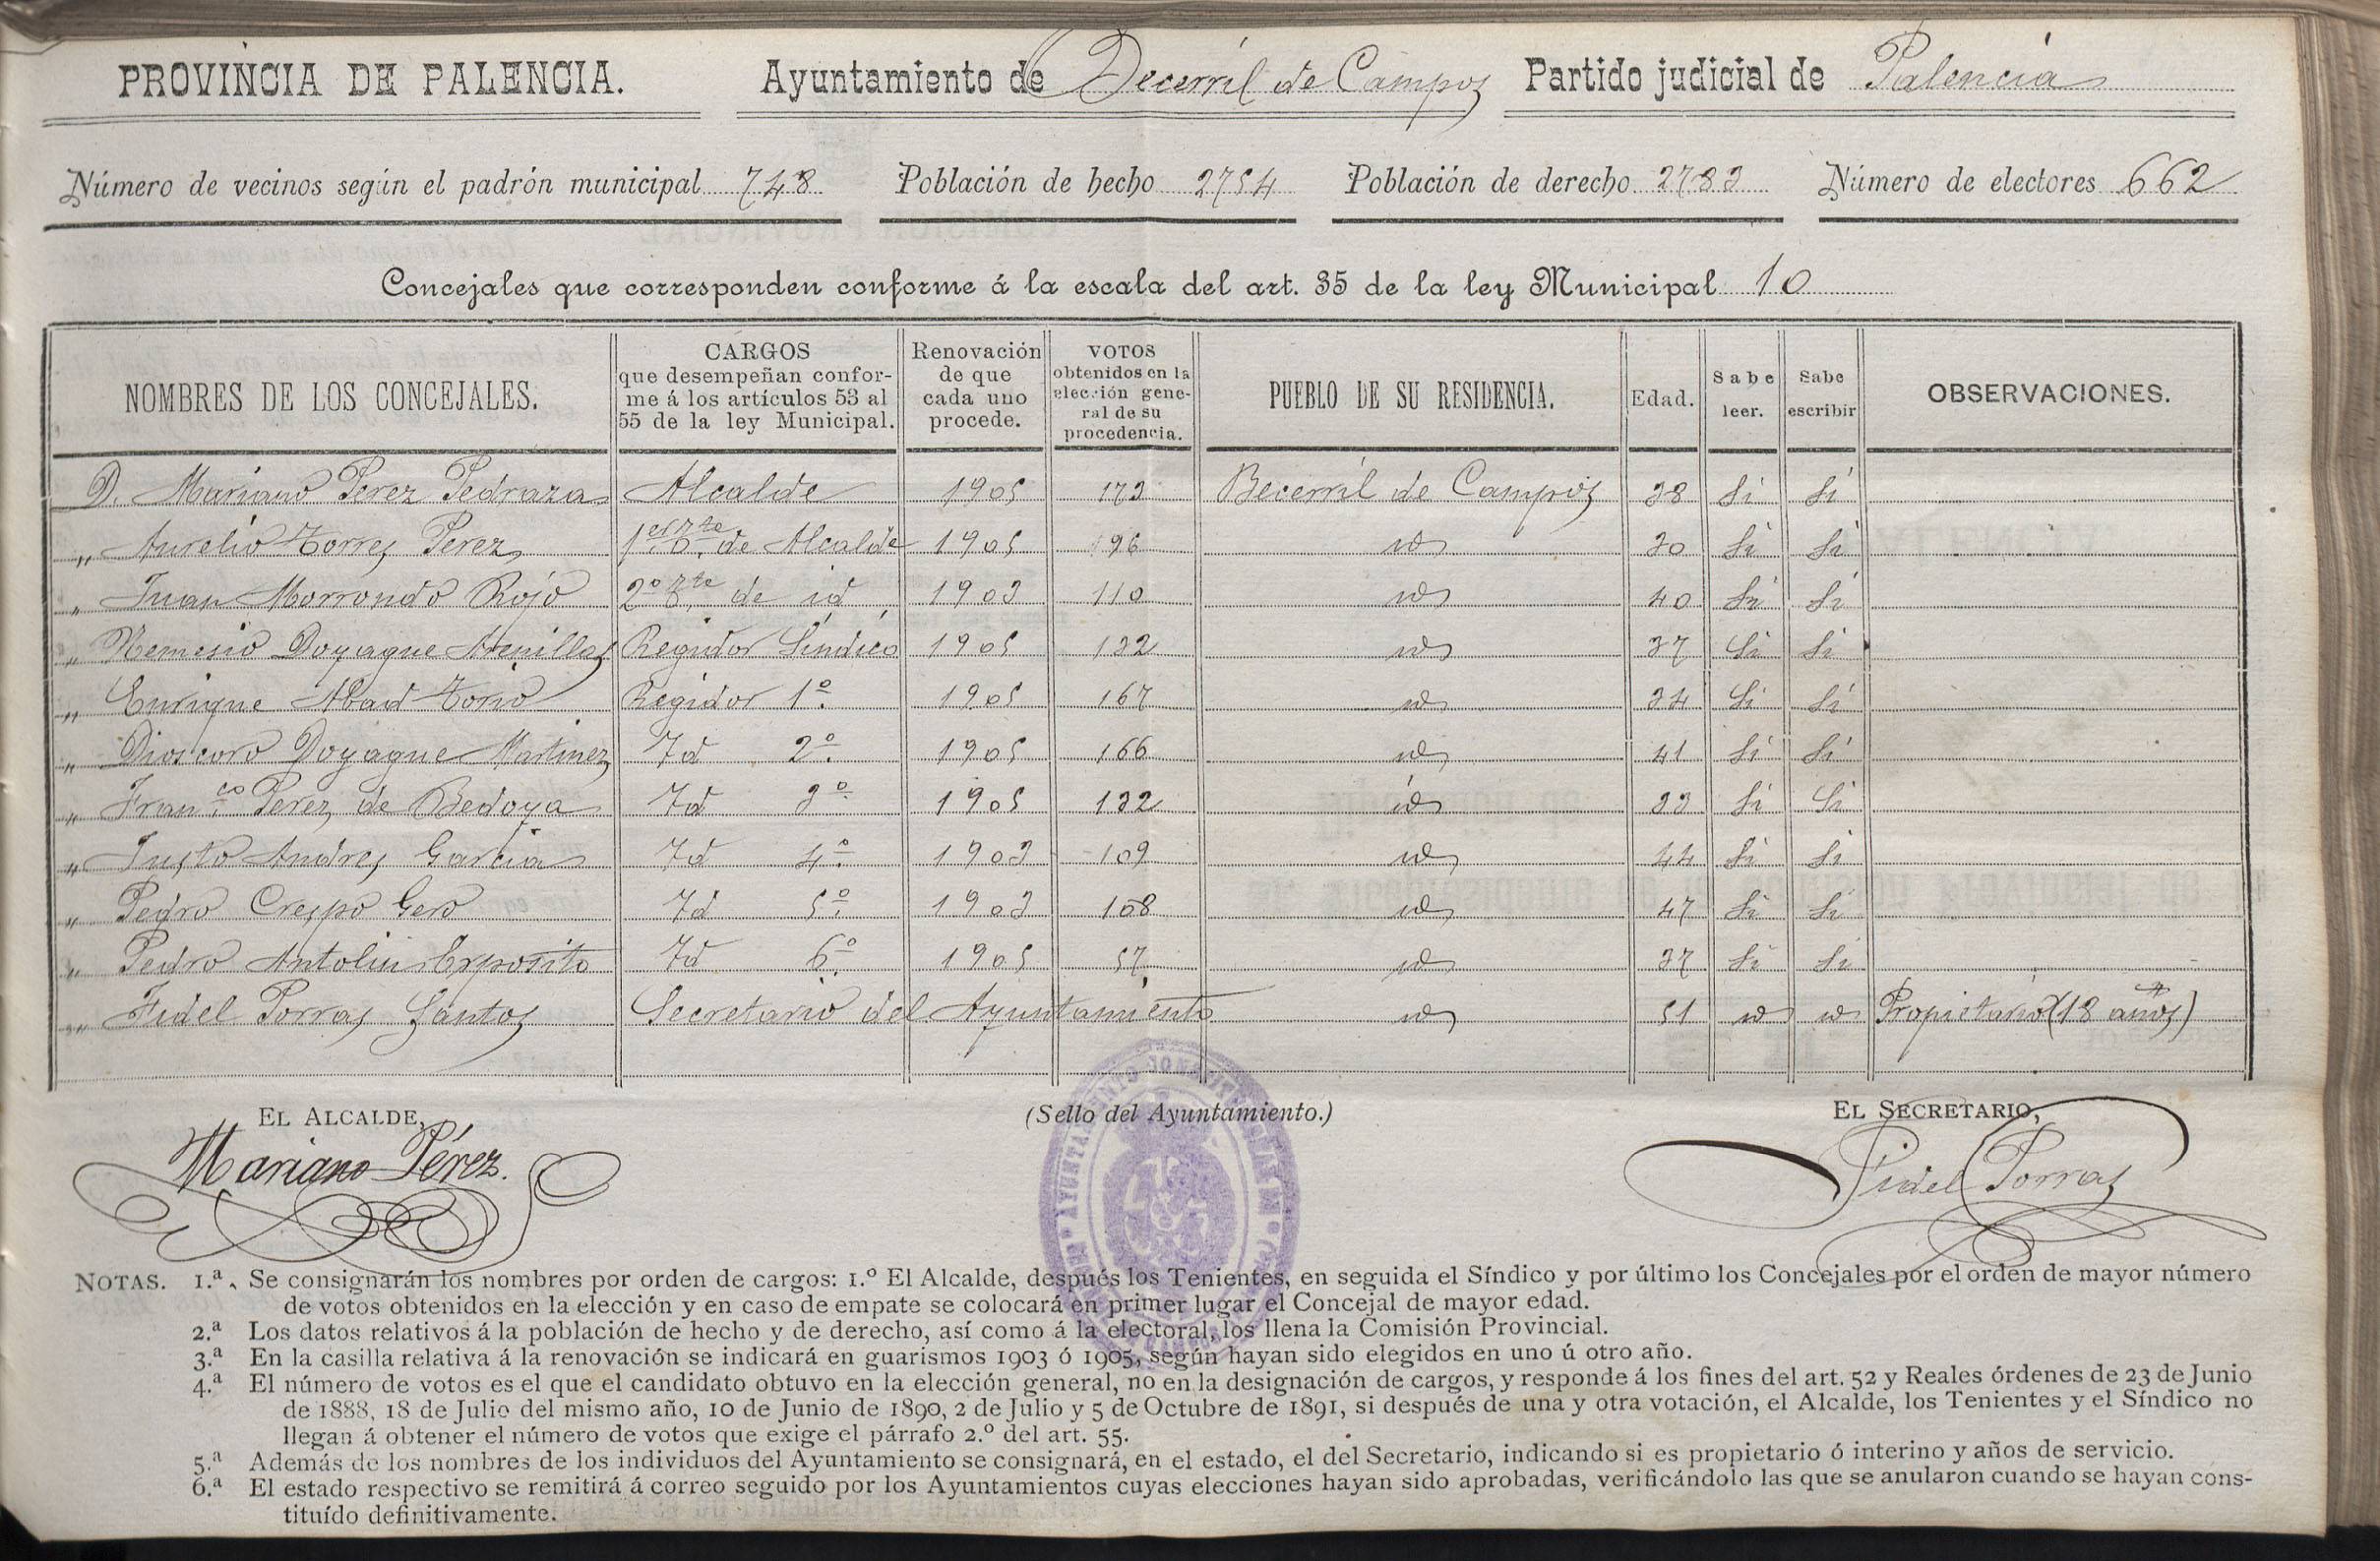 PROVINCIA DE PALENCIA. Ayuntamiento de Becerril de Campos Partido judicial de Palencia
Número de vecinos según el padrón municipal 748 Población de hecho 2754 Población de derecho 2783 Número de electores 662
Concejales que corresponden conforme á la escala del art. 35 de la ley Municipal 10
NOMBRES DE LOS CONCEJALES. CARGOS que desempeñan conforme á los artículos 53 al 55 de la ley Municipal. Renovación de que cada uno procede. VOTOS obtenidos en la elección general de su procedencia. PUEBLO DE SU RESIDENCIA. Edad. Sabe leer. Sabe escribir OBSERVACIONES.
D. Mariano Perez Pedraza Alcalde 1905 173 Becerril de Campos 38 Si Si
" Aurelio Torres Perez 1er Tte de Alcalde 1905 196 id 30 Si Si
" Juan Morrondo Rojo 2º Tte de id 1903 110 id 40 Si Si
" Nemesio Doyague Atenillas Regidor Sindico 1905 132 id 37 Si Si
" Enrique Abad Torio Regidor 1º 1905 167 id 34 Si Si
" Dioscoro Doyague Martinez Id 2º 1905 166 id 41 Si Si
" Franco Perez de Bedoya Id 3º 1905 132 id 33 Si Si
" Justo Andres Garcia Id 4º 1903 109 id 44 Si Si
" Pedro Crespo Gero Id 5º 1903 108 id 47 Si Si
" Pedro Antolin Exposito Id 6º 1905 57 id 37 Si Si
" Fidel Porras Santos Secretario del Ayuntamiento id 51 id id Propietario (18 años)
EL ALCALDE, (Sello del Ayuntamiento.) EL SECRETARIO,
Mariano Pérez. Fidel Porras
NOTAS. 1.ª Se consignarán los nombres por orden de cargos: 1.º El Alcalde, después los Tenientes, en seguida el Síndico y por último los Concejales por el orden de mayor número
de votos obtenidos en la elección y en caso de empate se colocará en primer lugar el Concejal de mayor edad.
2.ª Los datos relativos á la población de hecho y de derecho, así como á la electoral, los llena la Comisión Provincial.
3.ª En la casilla relativa á la renovación se indicará en guarismos 1903 ó 1905, según hayan sido elegidos en uno ú otro año.
4.ª El número de votos es el que el candidato obtuvo en la elección general, no en la designación de cargos, y responde á los fines del art. 52 y Reales órdenes de 23 de Junio
de 1888, 18 de Julio del mismo año, 10 de Junio de 1890, 2 de Julio y 5 de Octubre de 1891, si después de una y otra votación, el Alcalde, los Tenientes y el Síndico no
llegan á obtener el número de votos que exige el párrafo 2.º del art. 55.
5.ª Además de los nombres de los individuos del Ayuntamiento se consignará, en el estado, el del Secretario, indicando si es propietario ó interino y años de servicio.
6.ª El estado respectivo se remitirá á correo seguido por los Ayuntamientos cuyas elecciones hayan sido aprobadas, verificándolo las que se anularon cuando se hayan cons-
tituído definitivamente.